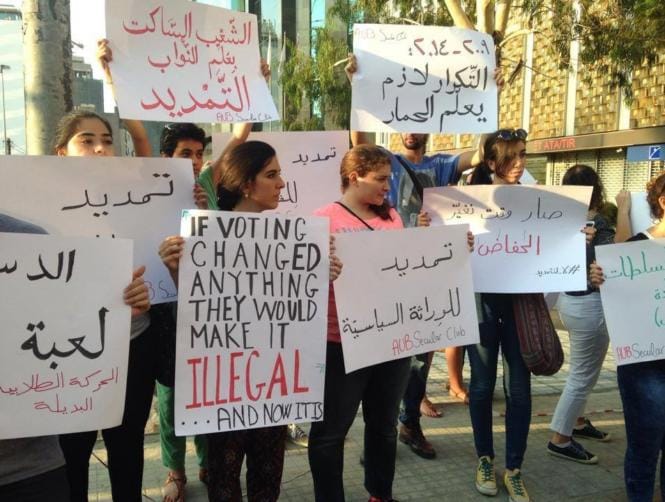 الشعب الساكت
بعلم النواب
التمديد
AUB Secular Club
٢٠٠٩-٢٠١٤:
التكرار لازم
يعلم الحمار
AUB Secular Club
تمديد
تمديد
صار وقت نغيّر
الحفاض
#كلا_للتمديد
IF VOTING
CHANGED
ANYTHING
THEY WOULD
MAKE IT
ILLEGAL
...AND NOW IT IS
تمديد
للوراثة السياسية
AUB Secular Club
لعبة
الحركة الطلابية
البديلة
AUB Secular
ATA/TIR